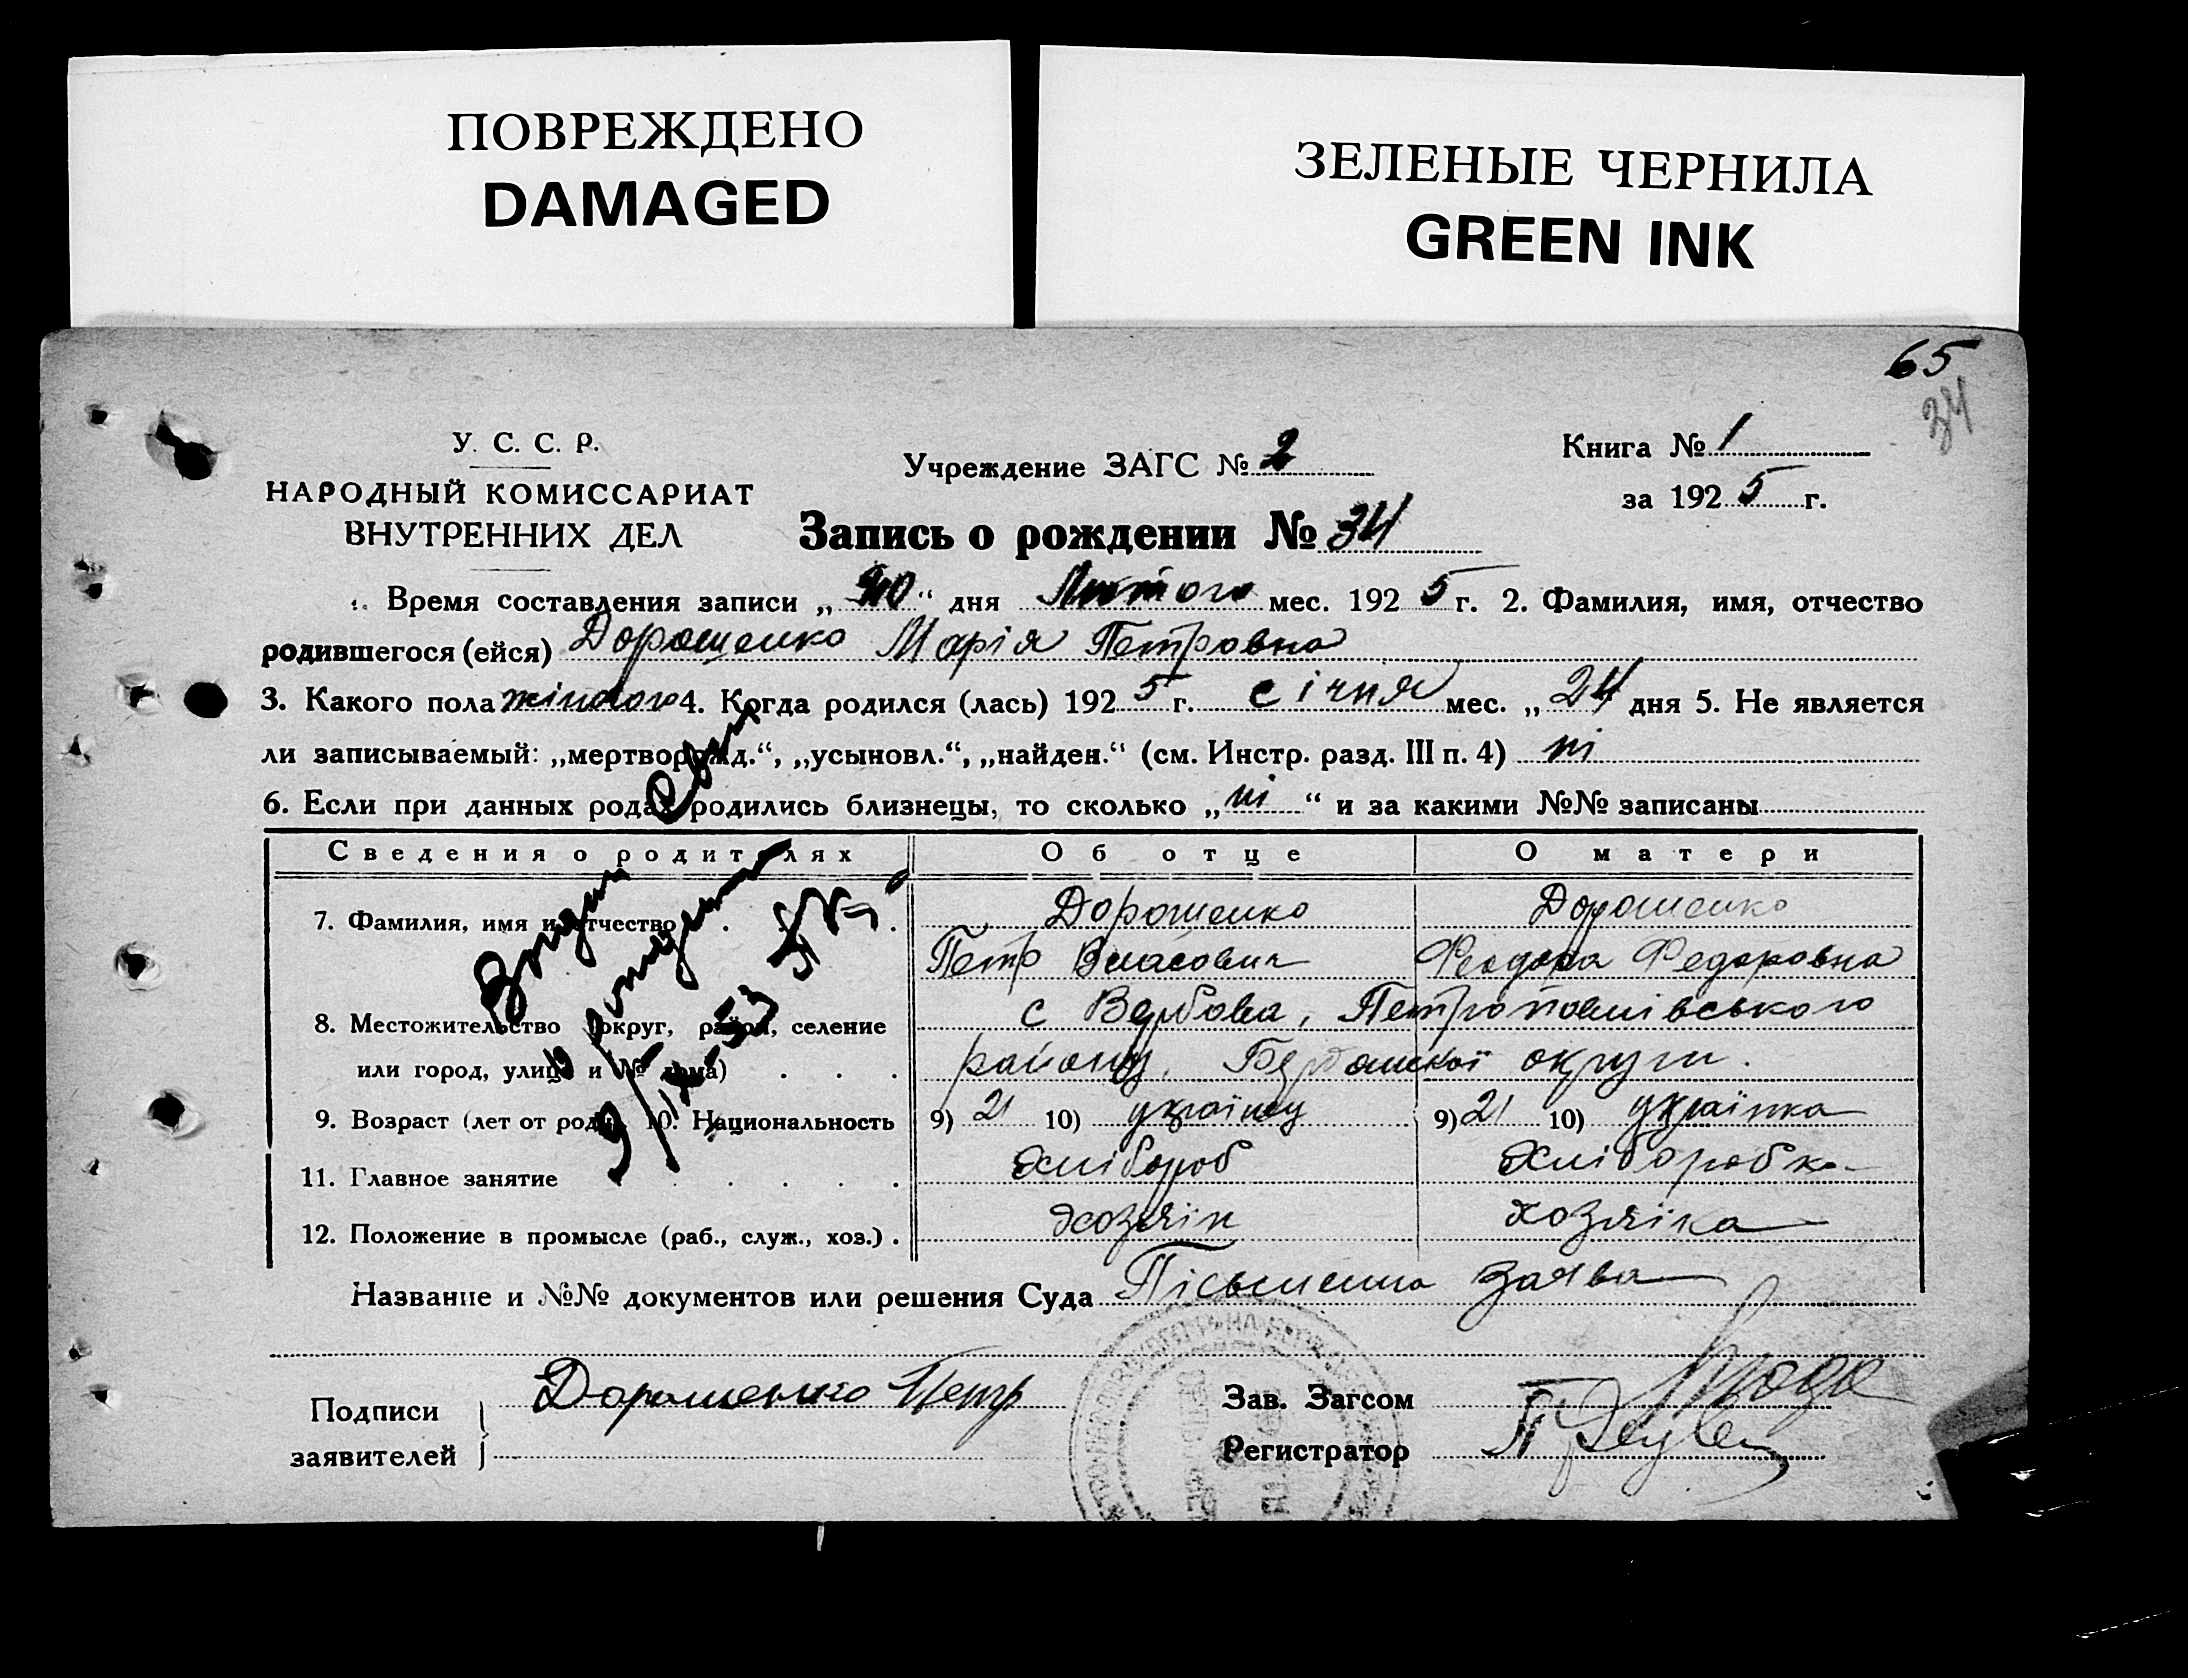 ПОВРЕЖДЕНО
DAMAGED
ЗЕЛЕНЫЕ ЧЕРНИЛА
GREEN INK
65
34
У. С. С. Р.
НАРОДНЫЙ КОМИССАРИАТ
ВНУТРЕННИХ ДЕЛ
Учреждение ЗАГС № 2
Книга № 1
за 1925 г.
Запись о рождении № 34
Время составления записи „ “ дня Лютого мес. 1925 г. 2. Фамилия, имя, отчество
родившегося (ейся) Дорошенко Марія Петровна
3. Какого пола жіночого 4. Когда родился (лась) 1925 г. січня мес. „24 дня 5. Не является
ли записываемый: „мертворожд.“, „усыновл.“, „найден.“ (см. Инстр. разд. III п. 4) ні
6. Если при данных родах родились близнецы, то сколько „ні“ и за какими №№ записаны
Сведения о родителях Об отце О матери
7. Фамилия, имя и отчество Дорошенко Дорошенко
Петр Власович Феодора Федоровна
8. Местожительство (округ, район, селение с Вербова, Петропавлівського
или город, улица и № дома) району, Бердянської округи.
9. Возраст (лет от роду). 10. Национальность 9) 21 10) українец 9) 21 10) українка
11. Главное занятие Хлібороб Хлібборобка
12. Положение в промысле (раб., служ., хоз.) Хозяїн хозяїка
Название и №№ документов или решения Суда Пісьменна Заява
Подписи Дорошенко Петр
заявителей
Зав. Загсом
Регистратор